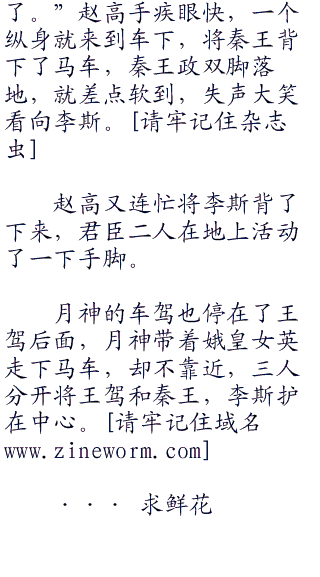 了。”赵高手疾眼快，一个
纵身就来到车下，将秦王背
下了马车，秦王政双脚落
地，就差点软到，失声大笑
看向李斯。[请牢记住杂志
虫]
赵高又连忙将李斯背了
下来，君臣二人在地上活动
了一下手脚。
月神的车驾也停在了王
驾后面，月神带着娥皇女英
走下马车，却不靠近，三人
分开将王驾和秦王，李斯护
在中心。[请牢记住域名
www.zineworm.com]
··· 求鲜花